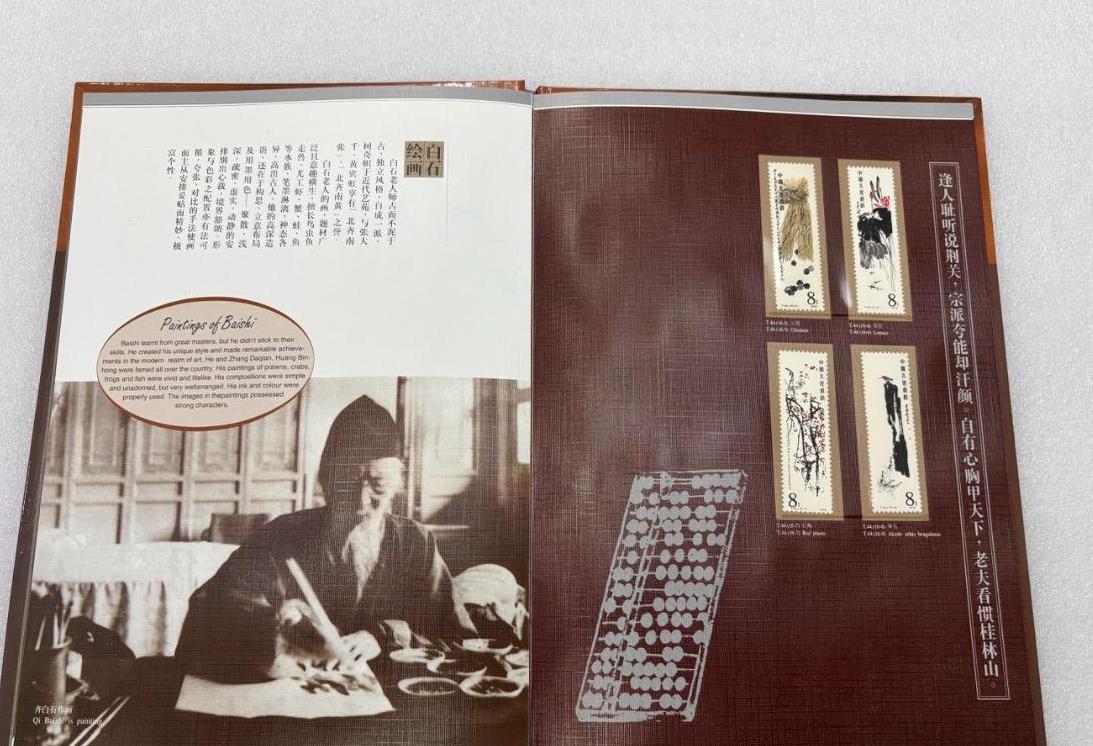 白石
绘画
白石老人师古而不泥于
古，独立风格，自成一派，
树奇帜于近代艺苑，与张大
千、黄宾虹享有“北齐南
张”、“北齐南黄”之誉。
白石老人的画，题材广
泛且意趣横生，擅长鸟虫鱼
走兽，尤工虾、蟹、蛙、鱼
等水族，笔墨淋漓，神态各
异，高出古人。他的高深造
诣，还在于构思、立意布局
及用墨用色——聚散、浅
深、疏密、虚实、动静的安
排别出心裁，境界豁朗。形
象与色彩之配置亦有法可
循，夸张、对比的手法使画
面主从安排妥贴而精妙，极
富个性。
Paintings of Baishi
Baishi learnt from great masters, but he didn't stick to their
skills. He created his unique style and made remarkable achieve-
ments in the modern realm of art. He and Zhang Daqian, Huang Bin-
hong were famed all over the country. His paintings of prawns, crabs,
frogs and fish were vivid and lifelike. His compositions were simple
and unadorned, but very wellarranged. His ink and colour were
properly used. The images in thepaintings possessed
strong characters.
齐白石作画
Qi Baishi is painting
逢人耻听说荆关，宗派夸能却汗颜。自有心胸甲天下，老夫看惯桂林山。
中国人民邮政
8分
中国人民邮政
8分
T.44.(16-5)
T.44.(16-6)
中国人民邮政
8分
中国人民邮政
8分
T.44.(16-7)
T.44.(16-7) Red plums
T.44.(16-8)
T.44.(16-8) Alcedo atthis bengalensis